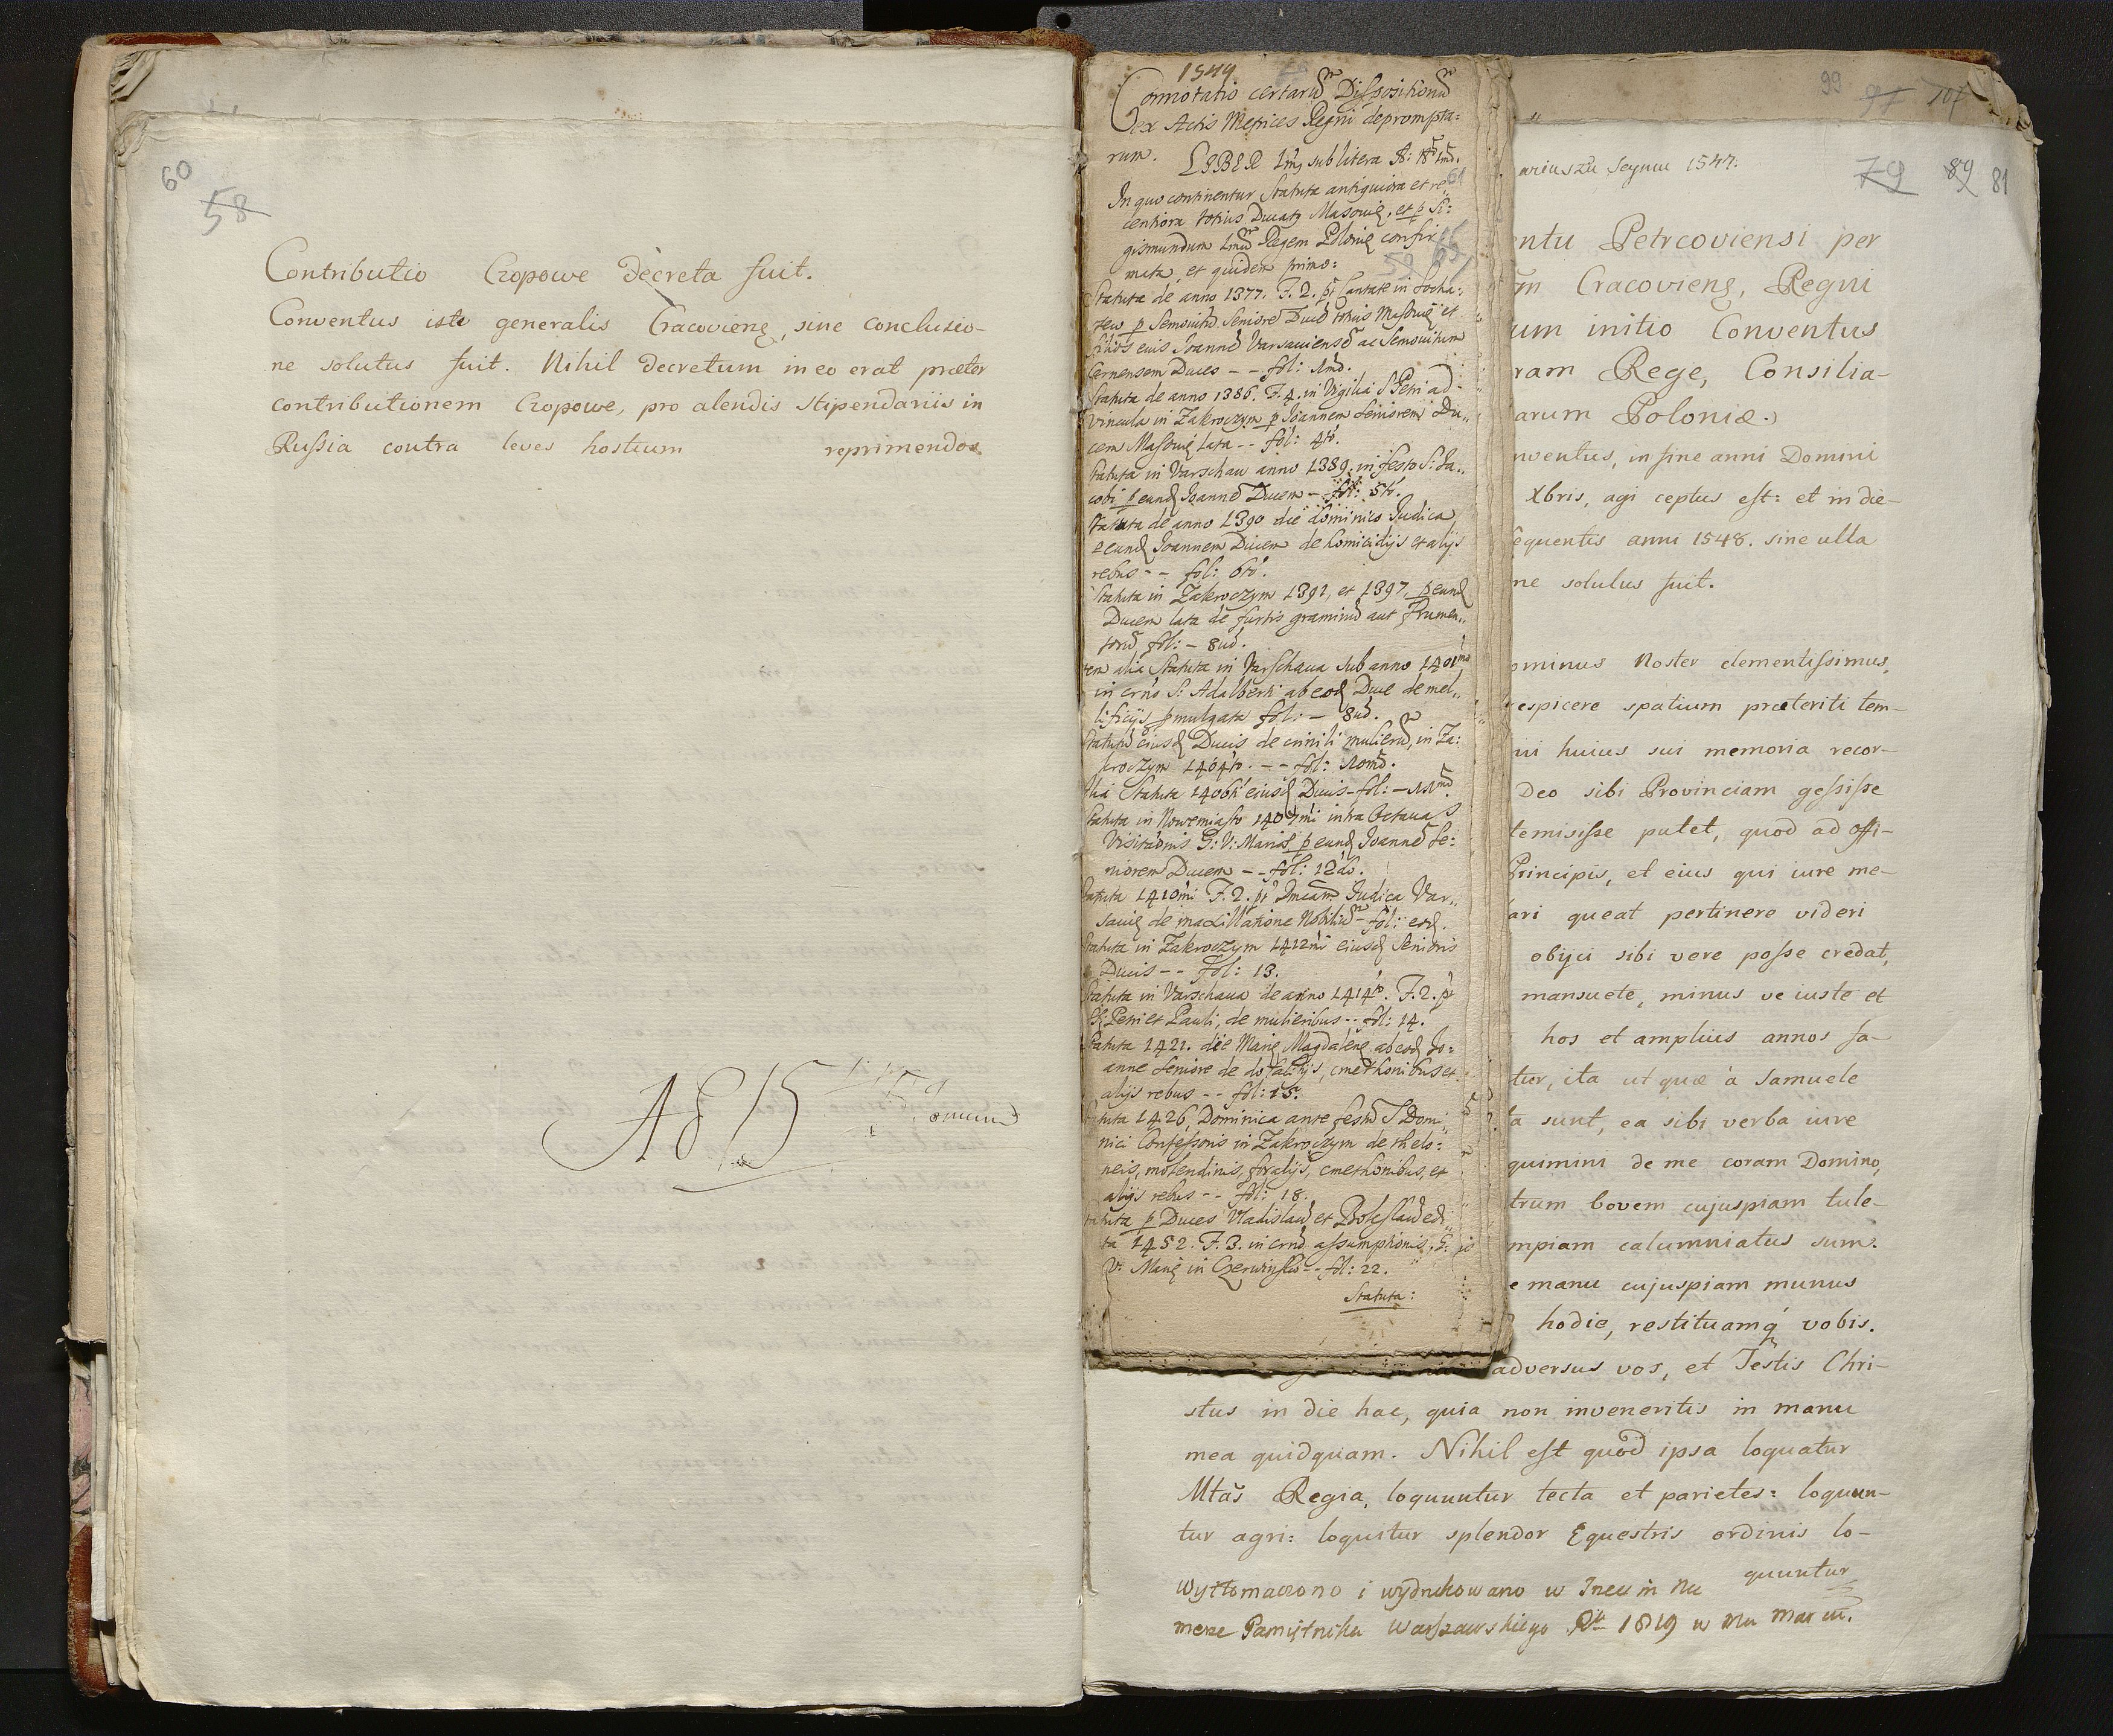 60
58
Contributio Czopowe decreta fuit.
Conventus iste generalis Cracovienę, sine conclusio-
ne solutus fuit. Nihil decretum in eo erat præter
contributionem Czopowe, pro alendis stipendariis in
Russia contra leves hostium reprimendos
1549
Connotatio certarū Dispositionū
ex Actis Metrices Regni deprompta:
rum. LIBER sub litera
In quo continentur Statuta antiquiora et re:
centiora totius Ducatꝰ Masovię, et p Si:
gismundum Regem Polonię confir
mata et quidem primo:
Statuta de anno 1377. F. 2. Cantate in Socha:
filios eius Joannē Varsaviensē ac Semovitum
Cernensem Duces -- fol: 1mū.
Statuta de anno 1386. F. 4. in Vigilia S Petri ad
vincula in Zakroczym p Joannem Seniorem Du„
cem Masovię lata -- fol: 4to.
Statuta in Varschau anno 1389. in festo S: Ja„
cobi p eund Joannē Ducem - fol: 5to.
Statuta de anno 1390 die dominico Judica,
p eund Joannem Ducem de homicidijs et alijs
rebus -- fol: 6to.
Statuta in Zakroczym 1391, et 1397, p eund
Ducem lata de furtis graminū aut frumen„
torū fol: - 8uū.
alia Statuta in Varschaua sub anno 1401mo
in crno S: Adalberti ab eod Duce de mel„
lificijs pmulgata fol: - 8uū.
Statutū eiusd Ducis de crinili mulierū, in Za:
kroczym 1404to. -- fol: 10mū.
Statuta 1406ti eiusd Ducis - fol: - 11mū
Statuta in Nowemiasto 1407mi intra Octavas
Visitaonis B: V: Marię p eund Joannē Se:
niorem Ducem -- fol: 12do.
Statuta 1410mi F. 2. Judica Var„
savię de maxillatione Nobiliū - fol: eod.
Statuta in Zakroczym 1412mi eiusd Senioris
Ducis -- fol: 13.
Statuta in Varschaua de anno 1414to. F. 2. p
SS Petri et Pauli, de mulieribus -- fol: 14.
Statuta 1421. die Marię Magdalenę ab eod Jo:
anne Seniore de dotalitijs, cmethonibus et
alijs rebus -- fol: 15.
Statuta 1426, Dominica ante festū S Domi„
nici Confessoris in Zakroczym de thelo:
neis, molendinis, foralijs, cmethonibus, et
alijs rebus -- fol: 18.
Statuta p Duces Vladislaū et Boleslaū edi„
ta 1452. F. 3. in crnō assumptionis B:
V: Marię in Czerwinsko -- fol: 22.
Statuta:
99 97 107
79 89 81
ariuszu Seymu 1547:
entu Petrcoviensi per
Cracovienę, Regni
um initio Conventus
ram Rege, Consilia-
arum Poloniæ.
nventus, in fine anni Domini
Xbris, agi ceptus est: et in die
equentis anni 1548. sine ulla
ne solutus fuit.
ominus Noster clementissimus,
respicere spatium præteriti tem-
ni huius sui memoria recor-
Deo sibi Provinciam gessisse
temisisse putet, quod ad offi-
Principis, et eius qui iure me-
ari queat pertinere videri
obijci sibi vere posse credat,
mansuete, minus ve iuste et
hos et amplius annos fa-
tur, ita ut quæ à Samuele
ta sunt, ea sibi verba iure
quimini de me coram Domino,
trum bovem cujuspiam tule-
mpiam calumniatus sum.
e manu cujuspiam munus
hodie, restituamq́ vobis.
adversus vos, et Testis Chri-
stus in die hac, quia non inveneritis in manu
mea quidquam. Nihil est quod ipsa loquatur
Mtas Regia, loquuntur tecta et parietes: loquun-
tur agri: loquitur splendor Equestris ordinis lo-
quuntur
Wytłomaczono i wydrukowano w Trzecim Nu
merze Pamiętnika Warszawskiego Rk 1819 w